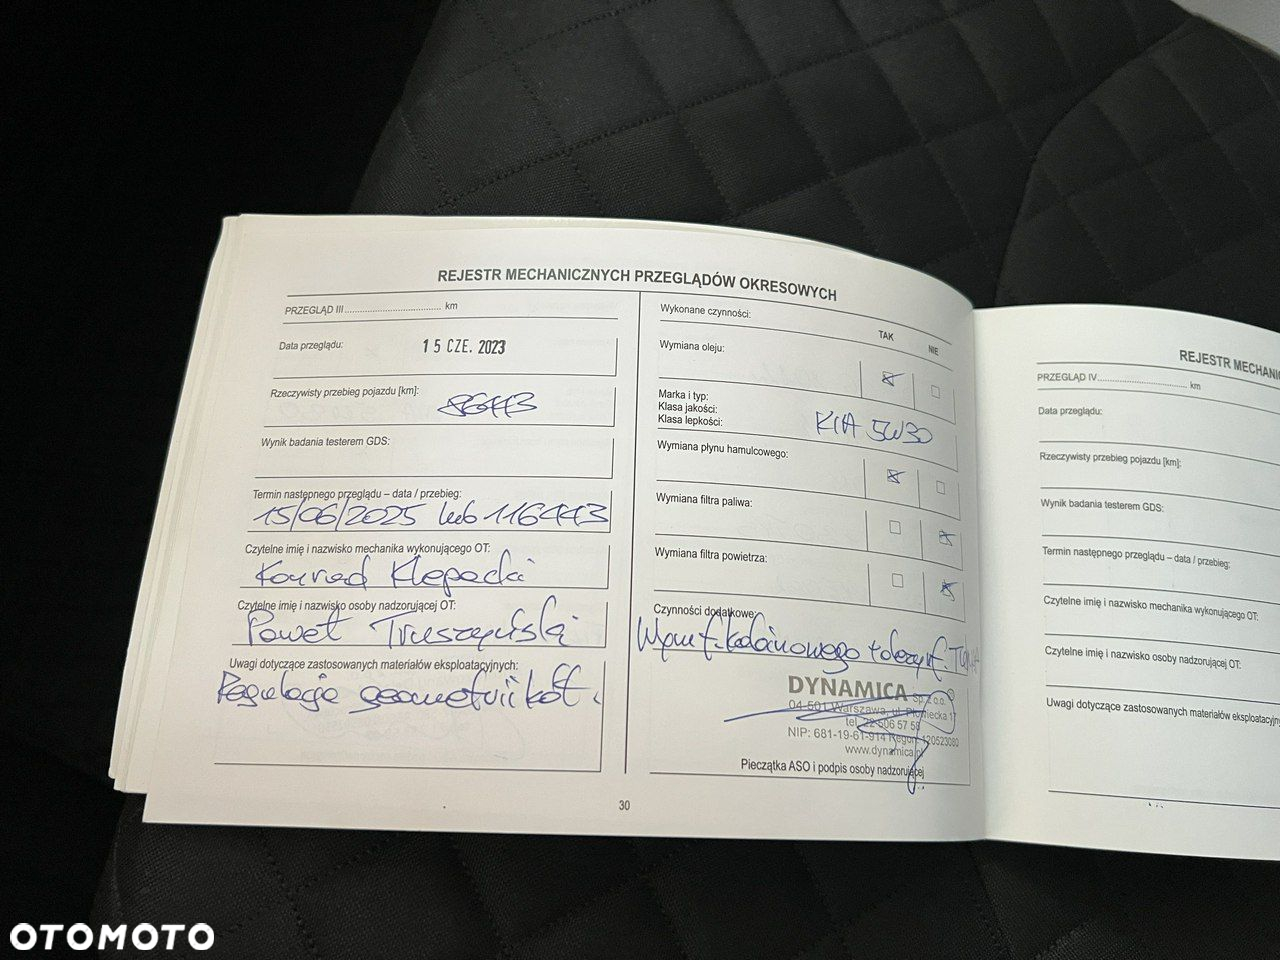 REJESTR MECHANICZNYCH PRZEGLĄDÓW OKRESOWYCH
PRZEGLĄD III........................................ km
Data przeglądu: 15 CZE. 2023
Rzeczywisty przebieg pojazdu [km]: 86443
Wynik badania testerem GDS:
Termin następnego przeglądu – data / przebieg:
15/06/2025 lub 116443
Czytelne imię i nazwisko mechanika wykonującego OT:
Konrad Klepacki
Czytelne imię i nazwisko osoby nadzorującej OT:
Paweł Truszyński
Uwagi dotyczące zastosowanych materiałów eksploatacyjnych:
Regulacja geometrii kół.
Wykonane czynności:
TAK NIE
Wymiana oleju:
Marka i typ:
Klasa jakości:
Klasa lepkości:
KIA 5W30
Wymiana płynu hamulcowego:
Wymiana filtra paliwa:
Wymiana filtra powietrza:
Czynności dodatkowe:
Wym f. kabinowego
DYNAMICA Sp. z o.o.
04-501 Warszawa, ul. Płowiecka 17
tel. 22 506 57 58
NIP: 681-19-61-914 Regon: 120523080
www.dynamica.pl
Pieczątka ASO i podpis osoby nadzorującej
30
REJESTR MECHANI
PRZEGLĄD IV........................................ km
Data przeglądu:
Rzeczywisty przebieg pojazdu [km]:
Wynik badania testerem GDS:
Termin następnego przeglądu – data / przebieg:
Czytelne imię i nazwisko mechanika wykonującego OT:
Czytelne imię i nazwisko osoby nadzorującej OT:
Uwagi dotyczące zastosowanych materiałów eksploatacyjny
OTOMOTO